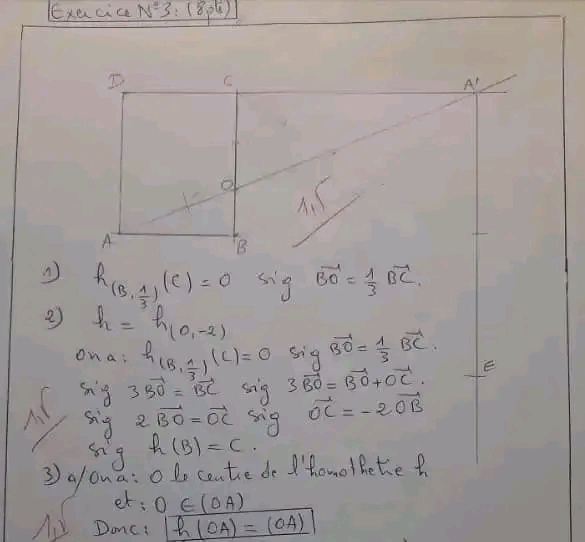 Exercice N°3: (8pts)
D C A'
O
1,5
A B
1) h(B, 1/3) (C) = O sig BO⃗ = 1/3 BC⃗.
2) h = h(O, -2)
on a: h(B, 1/3) (C) = O sig BO⃗ = 1/3 BC⃗.
E
sig 3BO⃗ = BC⃗ sig 3BO⃗ = BO⃗ + OC⃗.
1,5
sig 2BO⃗ = OC⃗ sig OC⃗ = -2OB⃗
sig h(B) = C.
3) a/ On a: O le centre de l'homothetie h
et: O ∈ (OA)
1,5
Donc: h(OA) = (OA)